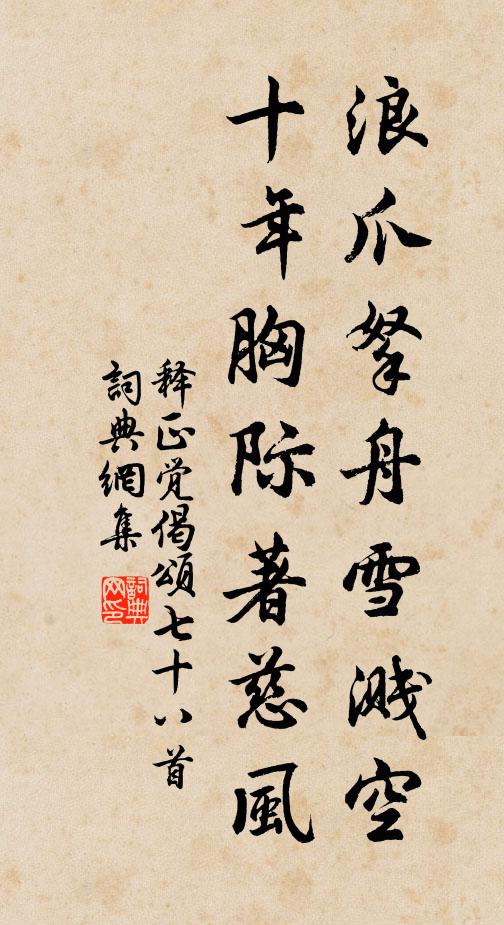 浪爪拏舟雪溅空
十年胸际著慈風
释正觉偈頌七十八首
詞典網集
詞典
网印